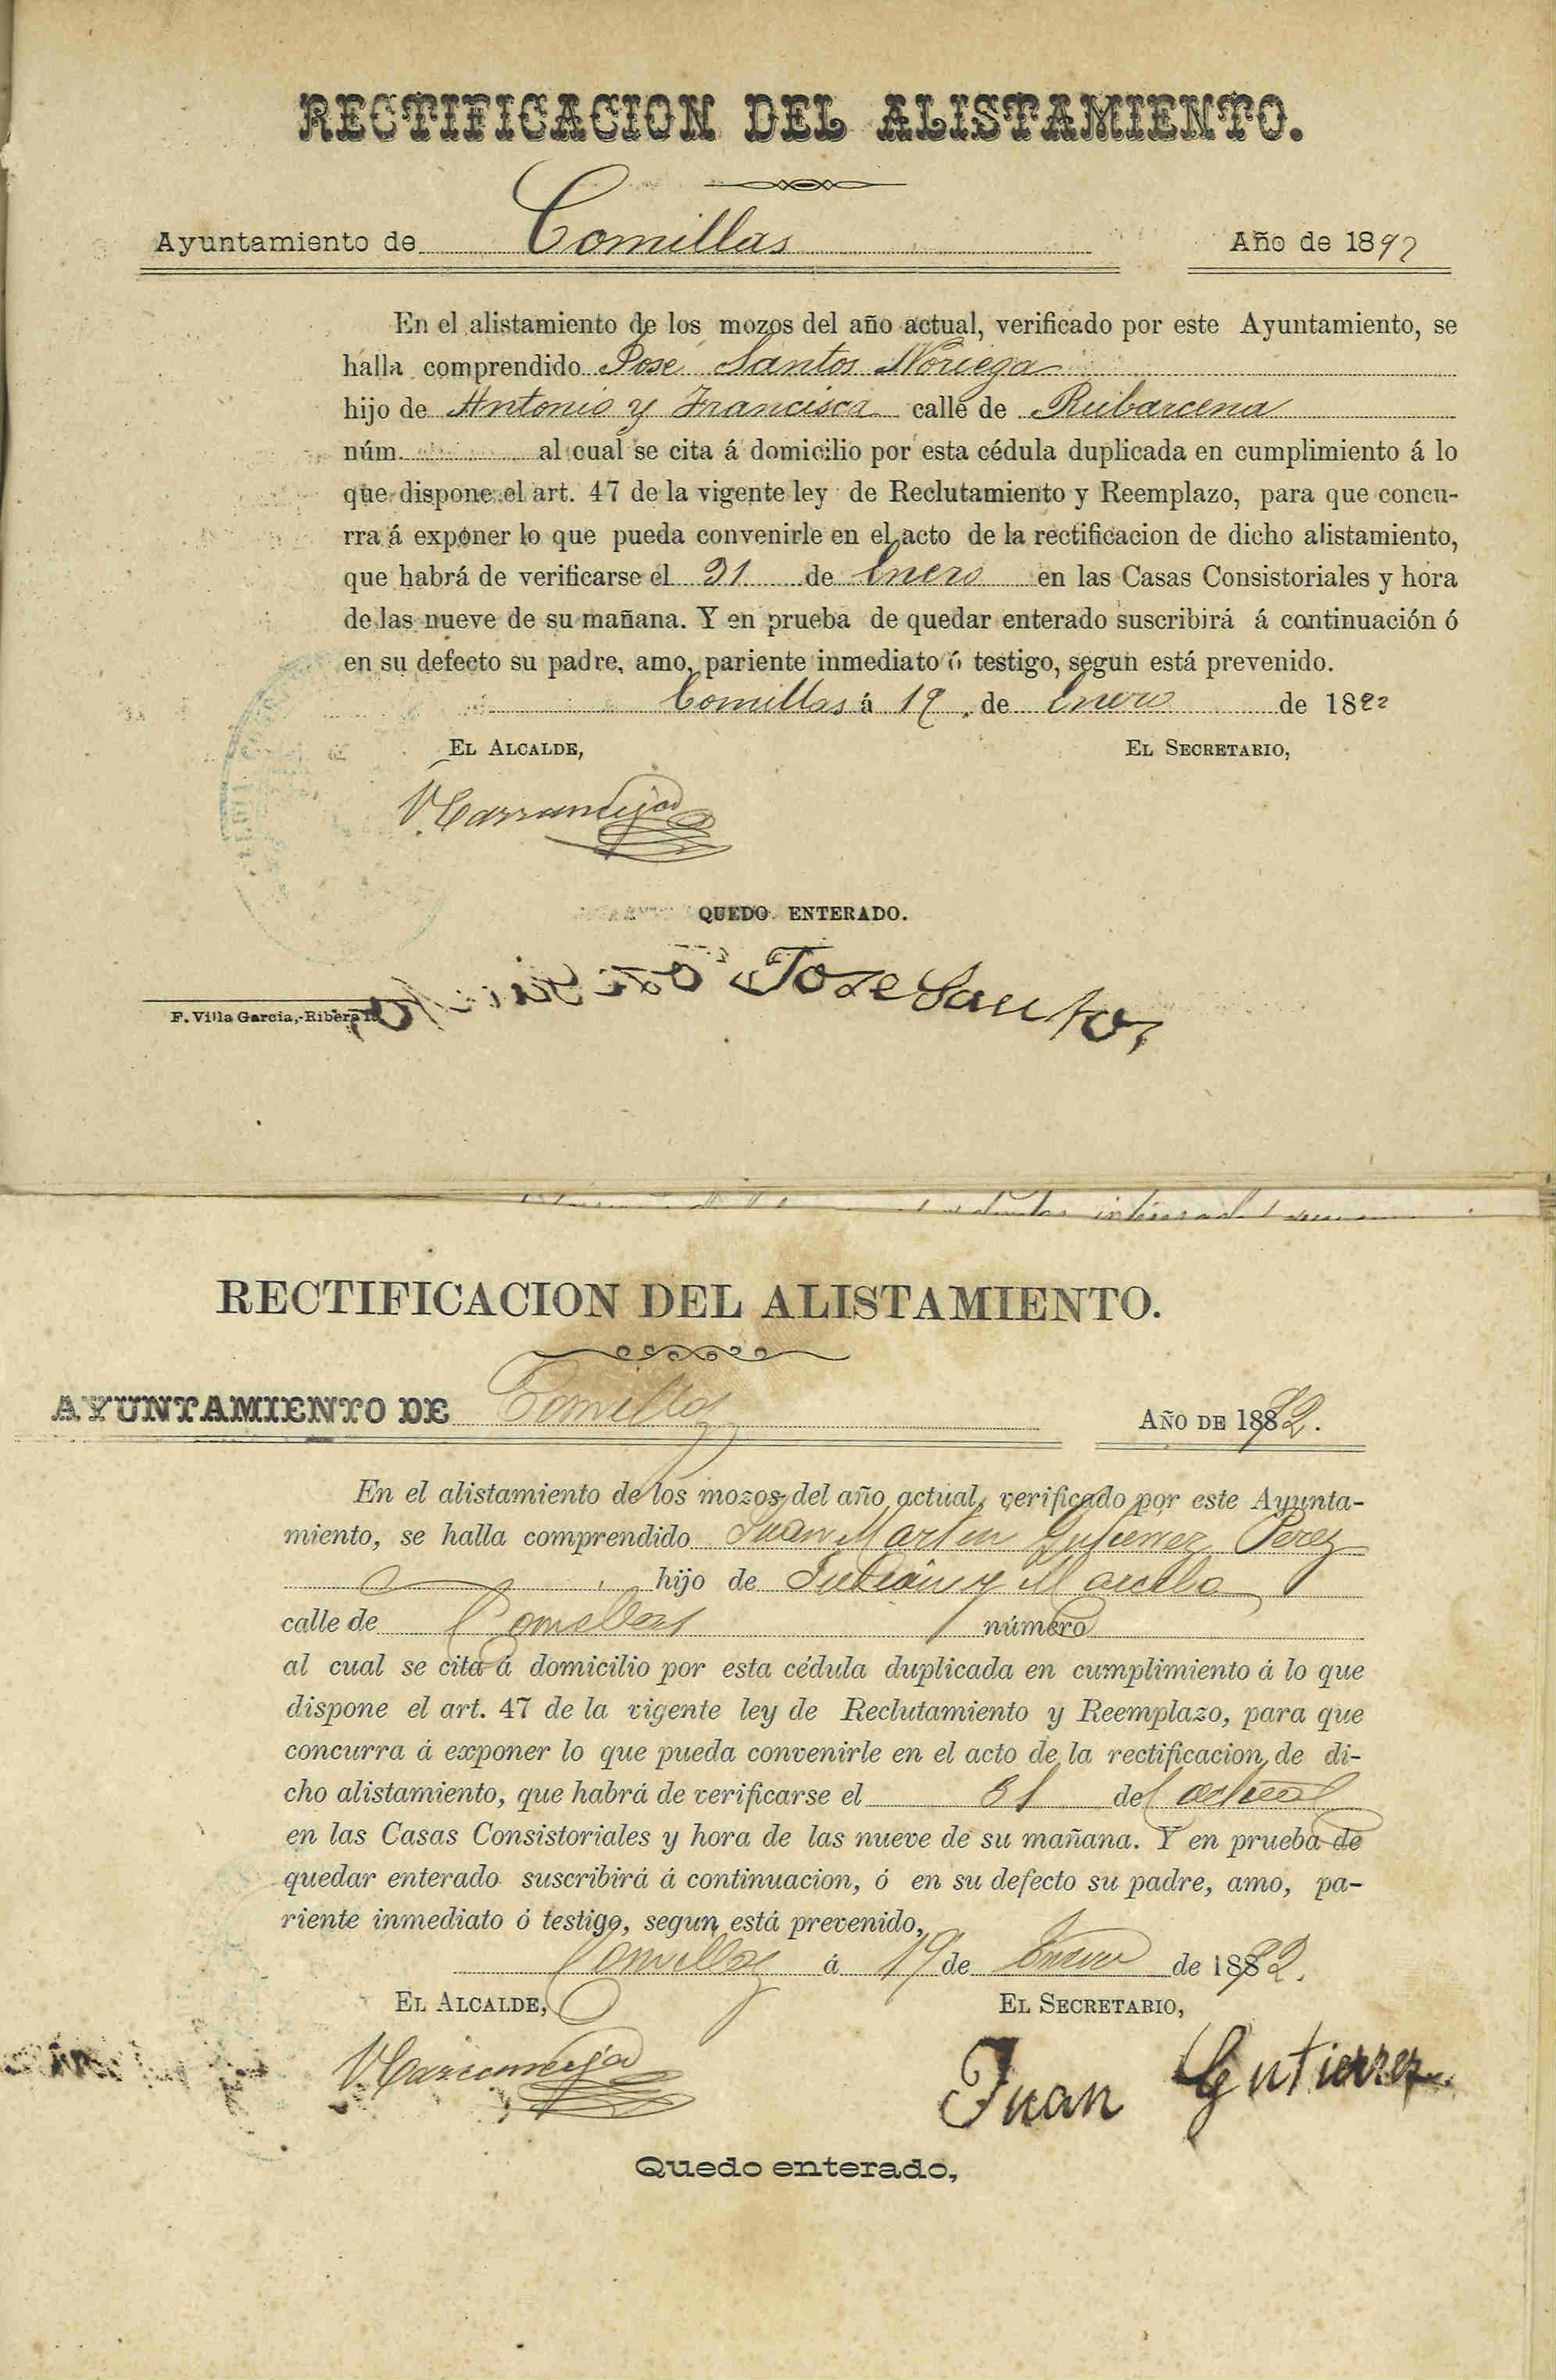 RECTIFICACION DEL ALISTAMIENTO.
Ayuntamiento de Comillas Año de 1892
En el alistamiento de los mozos del año actual, verificado por este Ayuntamiento, se
halla comprendido Jose Santos Noriega
hijo de Antonio y Francisca calle de Rubarcena
núm. al cual se cita á domicilio por esta cédula duplicada en cumplimiento á lo
que dispone el art. 47 de la vigente ley de Reclutamiento y Reemplazo, para que concu-
rra á exponer lo que pueda convenirle en el acto de la rectificacion de dicho alistamiento,
que habrá de verificarse el 31 de Enero en las Casas Consistoriales y hora
de las nueve de su mañana. Y en prueba de quedar enterado suscribirá á continuación ó
en su defecto su padre, amo, pariente inmediato ó testigo, segun está prevenido.
Comillas á 19 de Enero de 1892
EL ALCALDE, EL SECRETARIO,
QUEDO ENTERADO.
Jose Santos
F. Villa Garcia,-Ribera
RECTIFICACION DEL ALISTAMIENTO.
AYUNTAMIENTO DE Comillas AÑO DE 1892.
En el alistamiento de los mozos del año actual, verificado por este Ayunta-
miento, se halla comprendido Juan Martin Gutierrez Perez
hijo de Julian y Marcela
calle de Comillas número
al cual se cita á domicilio por esta cédula duplicada en cumplimiento á lo que
dispone el art. 47 de la vigente ley de Reclutamiento y Reemplazo, para que
concurra á exponer lo que pueda convenirle en el acto de la rectificacion de di-
cho alistamiento, que habrá de verificarse el 31 del actual
en las Casas Consistoriales y hora de las nueve de su mañana. Y en prueba de
quedar enterado suscribirá á continuacion, ó en su defecto su padre, amo, pa-
riente inmediato ó testigo, segun está prevenido,
Comillas á 19 de Enero de 1892.
EL ALCALDE, EL SECRETARIO,
Juan Gutierrez
Quedo enterado,